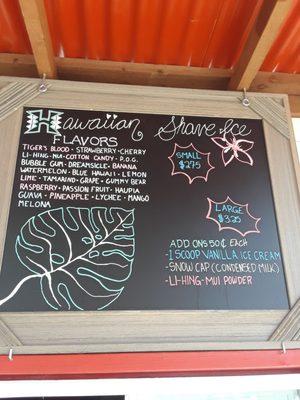 Hawaiian Shave Ice
FLAVORS
TIGER'S BLOOD • STRAWBERRY • CHERRY
LI-HING-MUI • COTTON CANDY • P.O.G.
BUBBLE GUM • DREAMSICLE • BANANA
WATERMELON • BLUE HAWAII • LEMON
LIME • TAMARIND • GRAPE • GUMMY BEAR
RASPBERRY • PASSION FRUIT • HAUPIA
GUAVA • PINEAPPLE • LYCHEE • MANGO
MELONA
SMALL
$2.75
LARGE
$3.25
ADD ONS 50¢ EACH
-1 SCOOP VANILLA ICE CREAM
-SNOW CAP (CONDENSED MILK)
-LI-HING-MUI POWDER